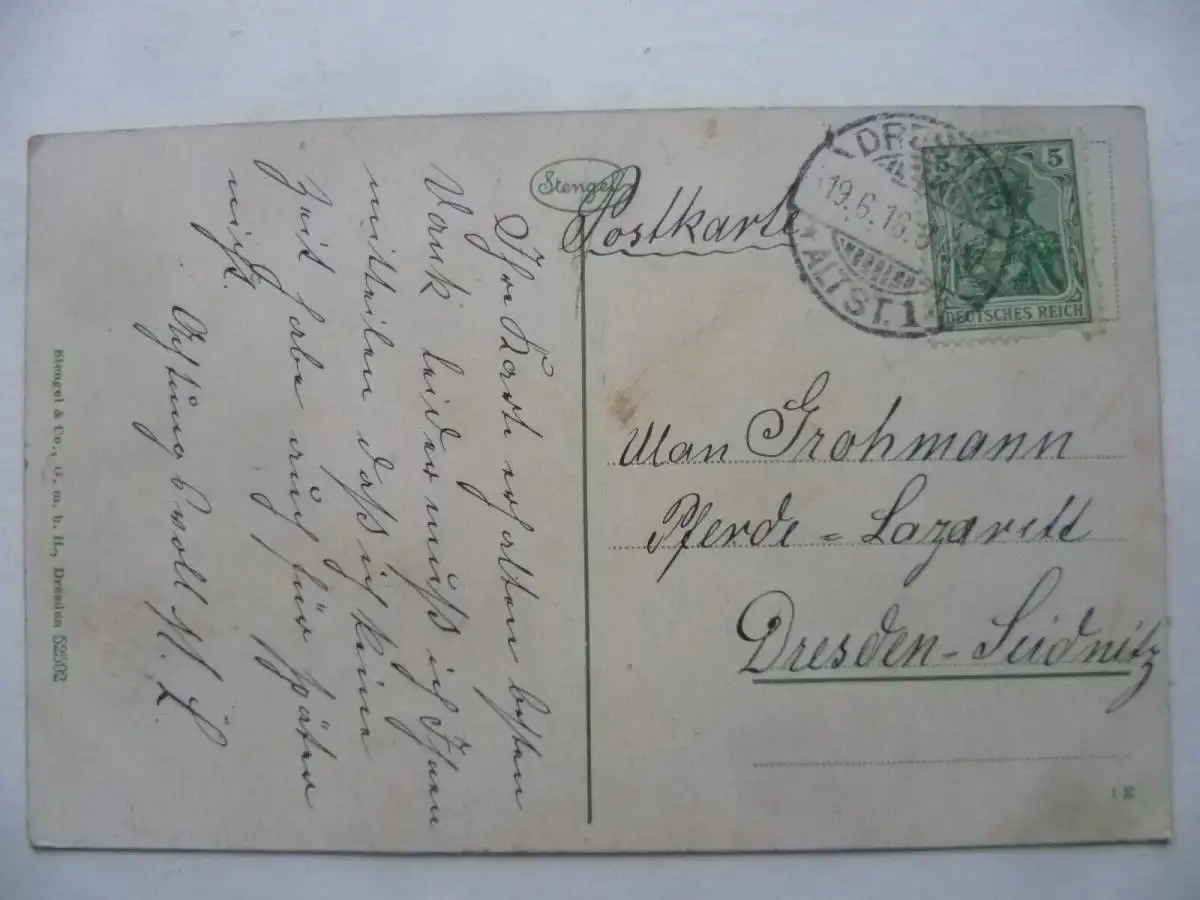 Stengel
Postkarte
DRESDEN
19.6.16.
* ALTST. 1 *
5 5
DEUTSCHES REICH
Ihre Karte erhalten besten
Dank leider muß ich Ihnen
mitteilen daß ich keine
Zeit habe auch für später
nicht.
Achtungsvoll M. L.
Ulan Grohmann
Pferde-Lazarett
Dresden-Seidnitz
Stengel & Co., G. m. b. H., Dresden 52502
1 E